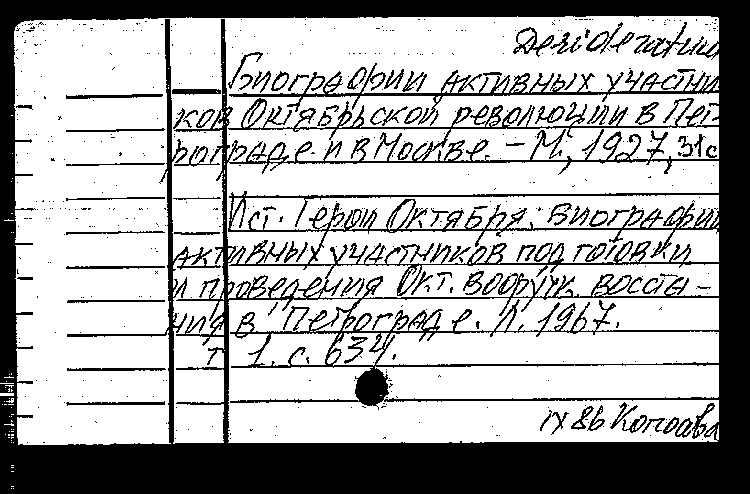 Desiderat
Биографии активных участни
ков Октябрьской революции в Пет-
рограде и в Москве. – М., 1927, 31с
Ист. Герои Октября: Биографии
активных участников подготовки
и проведения Окт. вооруж. восста-
ния в Петрограде. Л. 1967.
т 1. с. 634.
IX 86